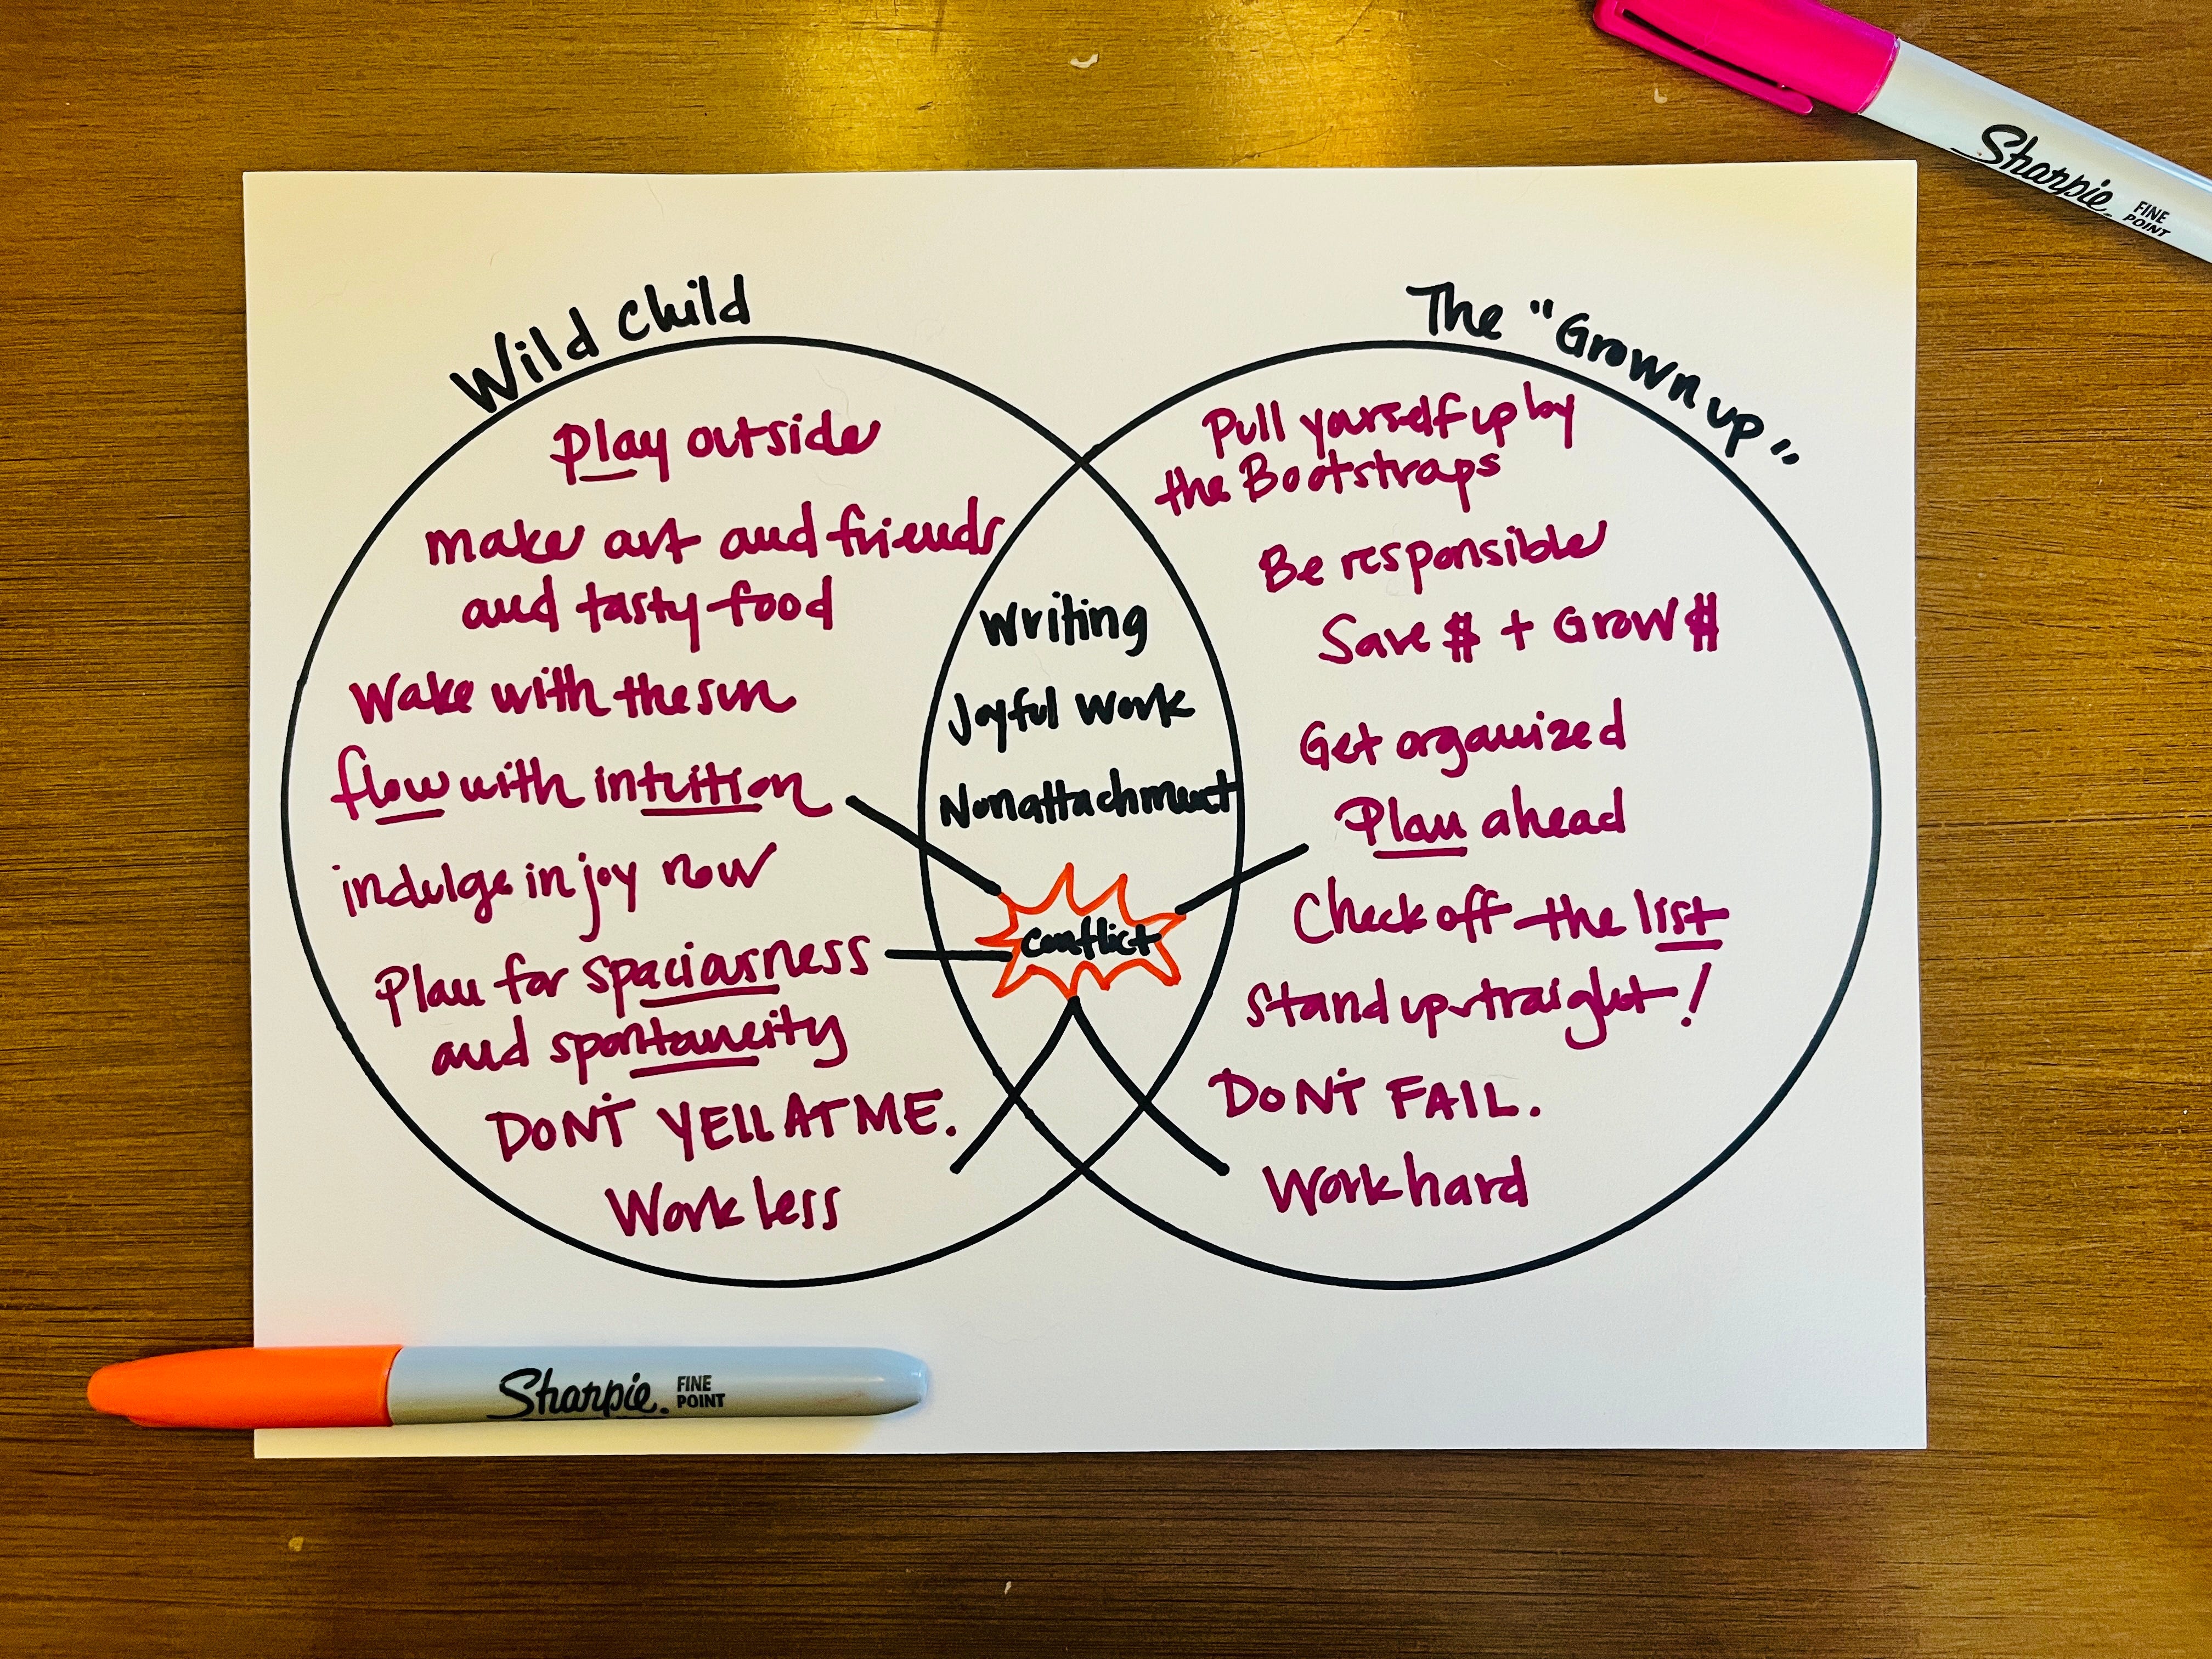 Sharpie.
FINE
POINT
Wild Child
The "Grown up"
Play outside
make art and friends
and tasty food
Wake with the sun
flow with intuition
indulge in joy now
Plan for spaciousness
and spontaneity
DON'T YELL AT ME.
Work less
Writing
Joyful work
Nonattachment
conflict
Pull yourself up by
the Bootstraps
Be responsible
Save $ + Grow $
Get organized
Plan ahead
Check off the list
Stand up straight!
DON'T FAIL.
Work hard
Sharpie.
FINE
POINT